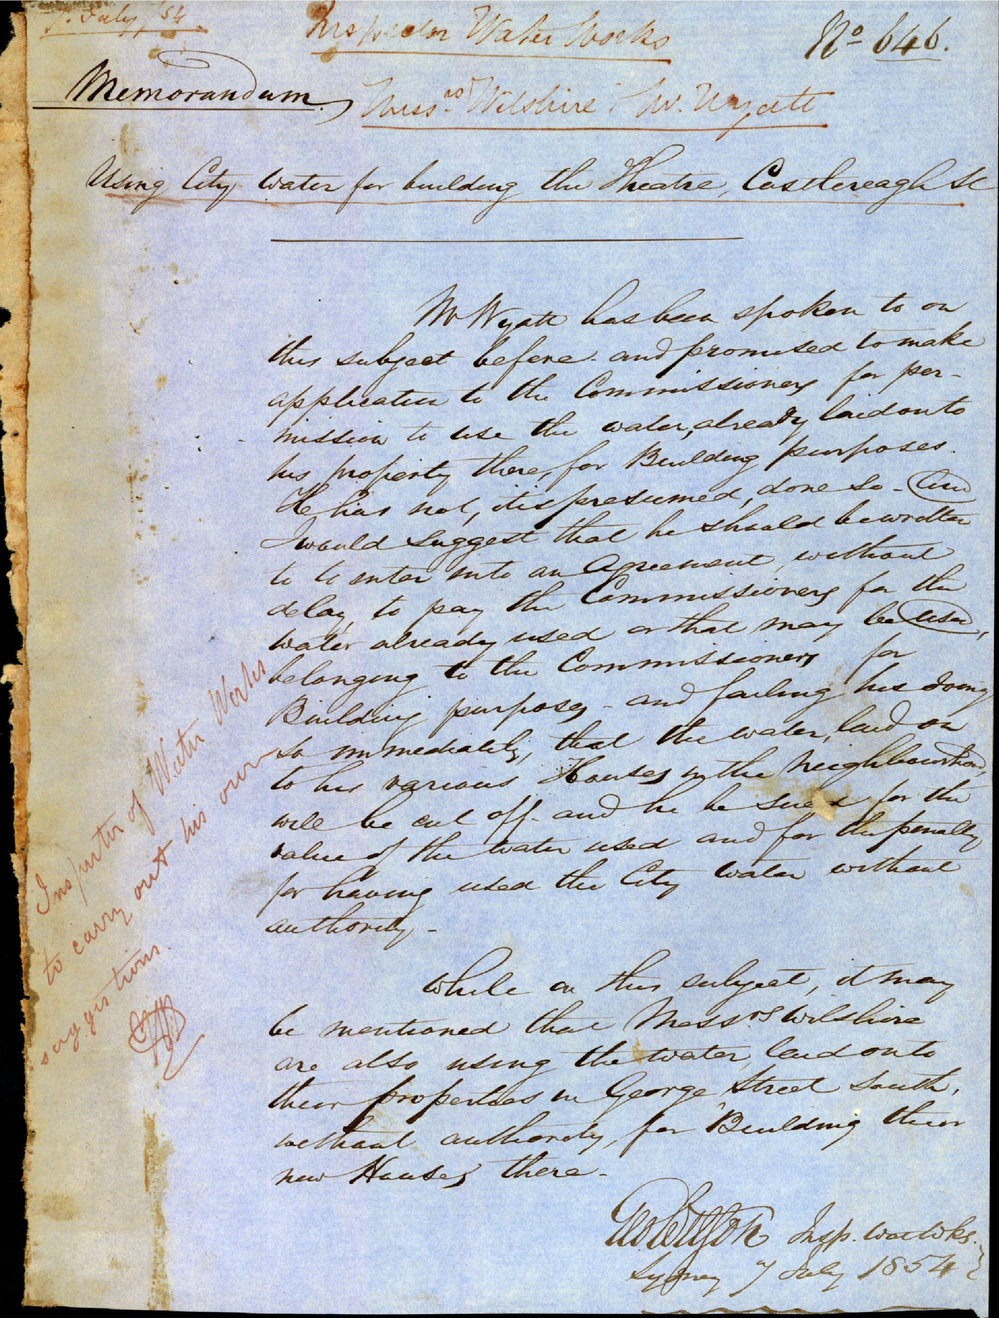 7. July, '54
Inspector Water Works
No 646.
Memorandum
Messrs Wilshire & W. Wyatt
Using City Water for building the Theatre, Castlereagh St
Mr Wyatt has been spoken to on
this subject before. and promised to make
application to the Commissioners for per-
mission to use the water, already laid on to
his property there, for Building purposes.
He has not, it is presumed, done so - and
I would suggest that he should be written
to to enter into an Agreement, without
delay, to pay the Commissioners for the
water already used or that may be used,
belonging to the Commissioners for
Building purposes - and failing his doing
so immediately, that the water, laid on
to his various Houses in the Neighbourhood,
will be cut off - and he be sued for the
value of the water used and for the penalty
for having used the City Water without
authority -
While on this subject, it may
be mentioned that Messrs Wilshire
are also using the water, laid on to
their properties in George Street South,
without authority, for Building their
new Houses there -
Insp. Wat Wks.
Sydney 7 July 1854
Inspector of Water Works
to carry out his own
suggestions.